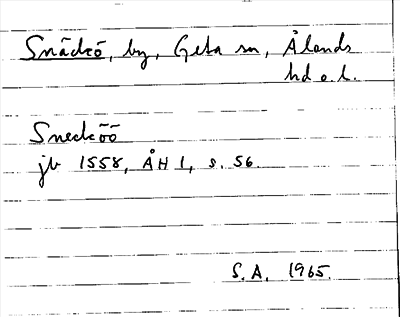 Snäckö, by, Geta sn, Ålands
hd o. l.
Snecköö
jb 1558, ÅH 1, s. 56.
S.A. 1965.